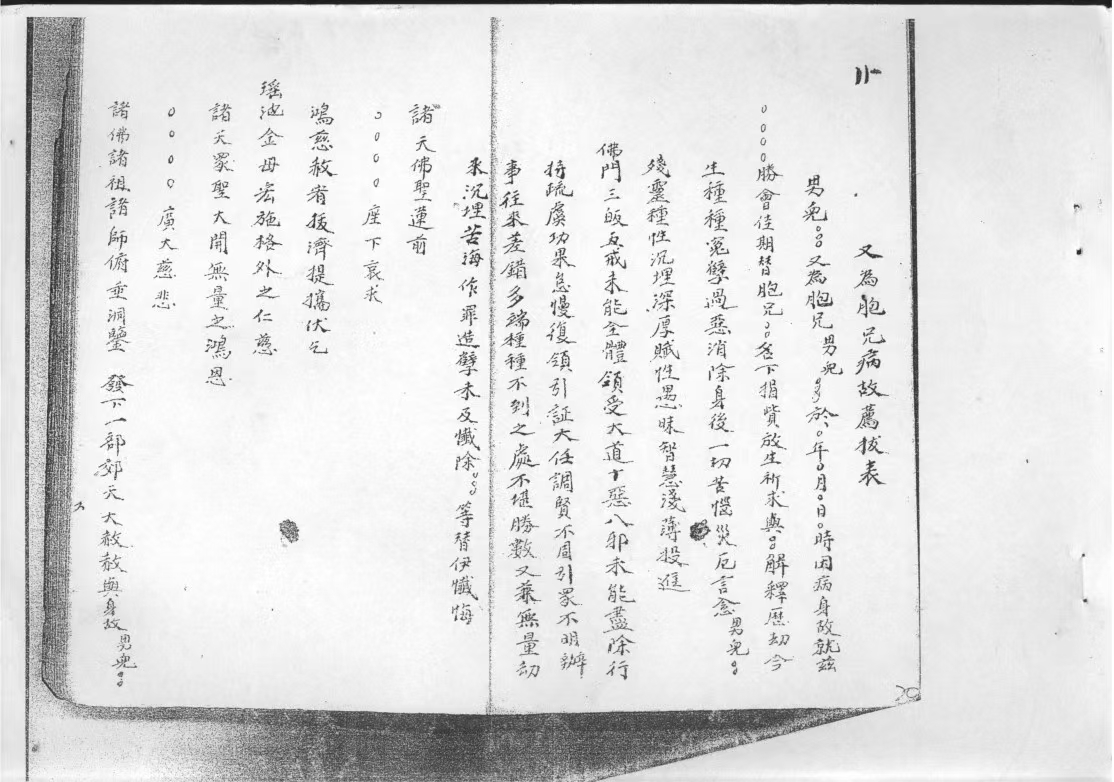 又為胞兄病故薦拔表
男兒○○○又為胞兄男兒○○於○年○月○日○時因病身故就茲
○○○○勝會佳期替胞兄○○名下捐貲放生祈求與○解釋歷劫今
生種種冤孽過惡消除身後一切苦惱災厄言念男兒○○
殘靈種性沉埋深厚賦性愚昧智慧淺薄投進
佛門三皈五戒未能全體領受大道十惡八邪未能盡除行
持疏虞功果怠慢復領引証大任調賢不周引眾不明辦
事往來差錯多端種種不到之處不堪勝數又兼無量劫
來沉埋苦海作罪造孽未及懺除○○等替伊懺悔
諸天佛聖蓮前
○○○○座下哀求
鴻慈赦宥拔濟提攜伏乞
瑤池金母宏施格外之仁慈
諸天眾聖大開無量之鴻恩
○○○○廣大慈悲
諸佛諸祖諸師俯垂洞鑒 發下一部郊天大赦赦與身故男兒○○
20